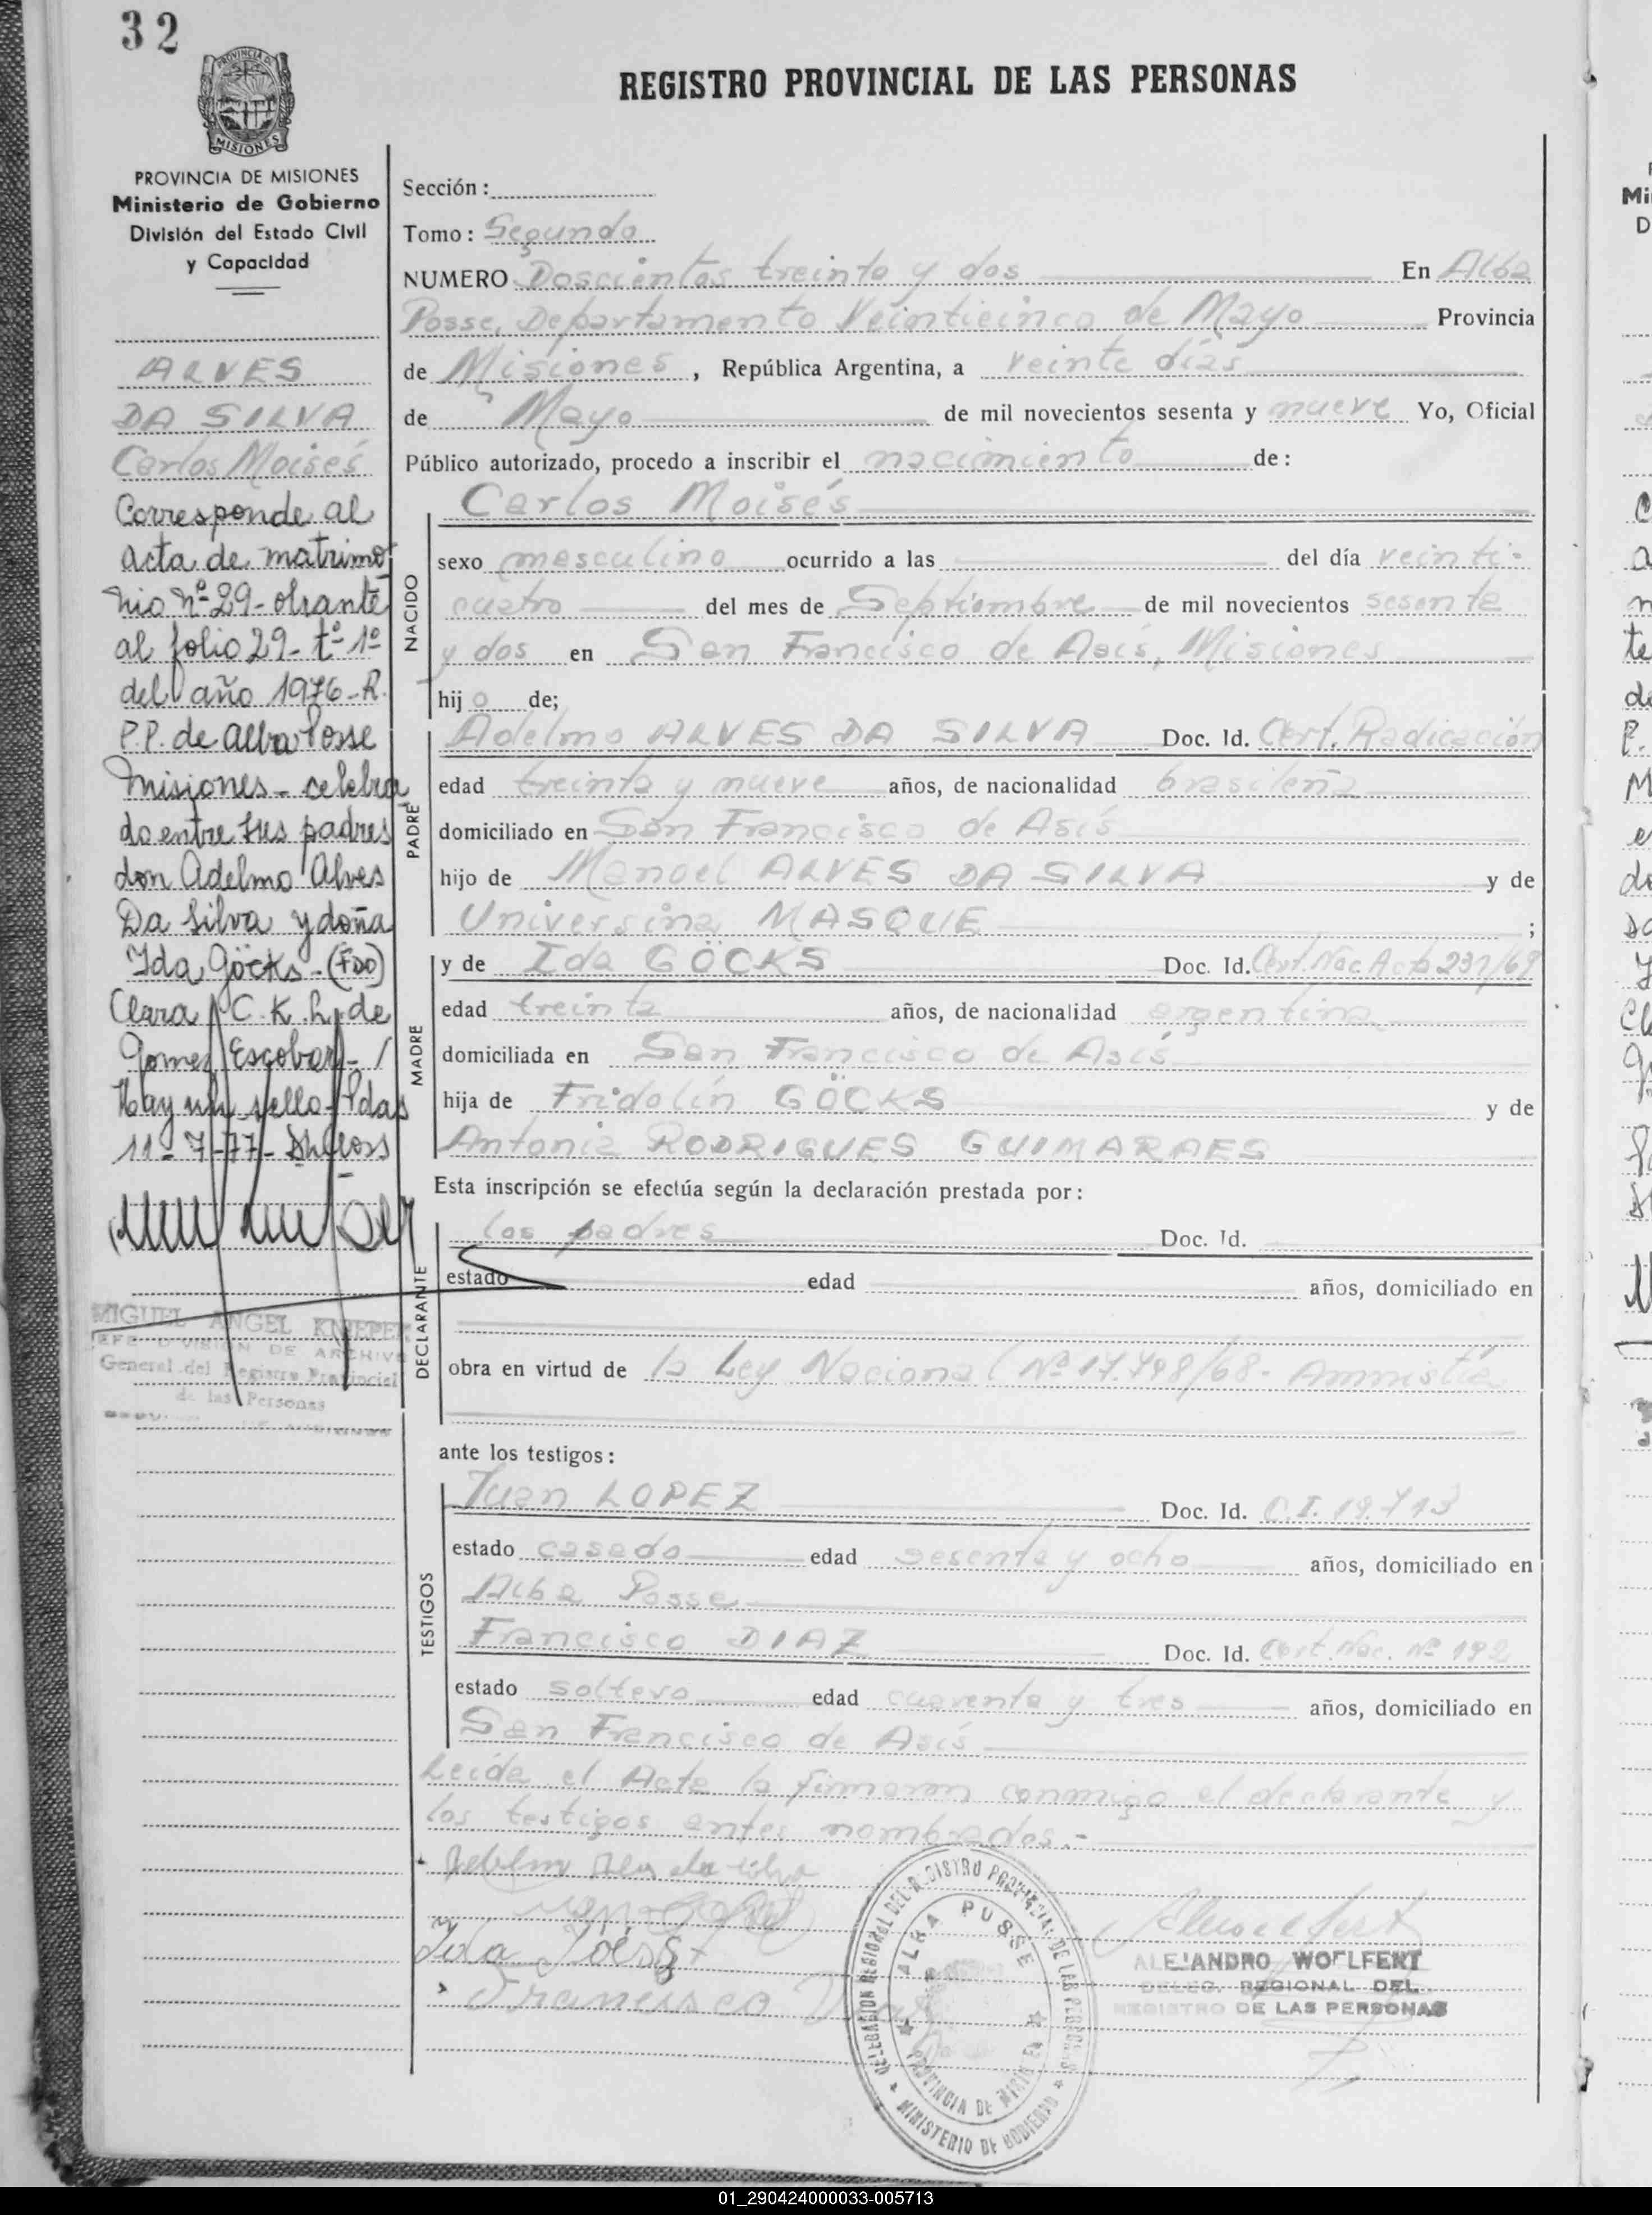 32
PROVINCIA DE
MISIONES
REGISTRO PROVINCIAL DE LAS PERSONAS
PROVINCIA DE MISIONES
Ministerio de Gobierno
División del Estado Civil
y Capacidad
ALVES
DA SILVA
Carlos Moisés
Corresponde al
acta de matrimo
nio nº 29- obrante
al folio 29- tº 1º
del año 1976-R.
P.P. de Alba Posse
Misiones- celebra
do entre sus padres
don Adelmo Alves
Da Silva y doña
Ida Göcks-(FDO)
Clara C.K.L. de
Gomez Escobar- /
Hay un sello- Pdas
11-7-77-
MIGUEL ANGEL KNIEPER
JEFE DIVISION DE ARCHIVO
General del Registro Provincial
de las Personas
Sección:
Tomo: Segundo
NUMERO Doscientos treinta y dos En Alba
Posse, Departamento Veinticinco de Mayo Provincia
de Misiones, República Argentina, a veinte días
de Mayo de mil novecientos sesenta y nueve Yo, Oficial
Público autorizado, procedo a inscribir el nacimiento de:
NACIDO
Carlos Moisés
sexo masculino ocurrido a las del día veinti-
cuatro del mes de Septiembre de mil novecientos sesenta
y dos en San Francisco de Asís, Misiones
hijo de;
PADRE
Adelmo ALVES DA SILVA Doc. Id. Cert. Radicación
edad treinta y nueve años, de nacionalidad brasileña
domiciliado en San Francisco de Asís
hijo de Manoel ALVES DA SILVA y de
Universina MASQUE ;
MADRE
y de Ida GÖCKS Doc. Id. Cert. Nac Acta 231/69
edad treinta años, de nacionalidad argentina
domiciliada en San Francisco de Asís
hija de Fridolín GÖCKS y de
Antonia RODRIGUES GUIMARAES
Esta inscripción se efectúa según la declaración prestada por:
DECLARANTE
los padres Doc. Id.
estado edad años, domiciliado en
obra en virtud de la Ley Nacional Nº 17.798/68- Amnistía
ante los testigos:
TESTIGOS
Juan LOPEZ Doc. Id. C.I. 19.713
estado casado edad sesenta y ocho años, domiciliado en
Alba Posse
Francisco DIAZ Doc. Id. Cert. Nac. Nº 192
estado soltero edad cuarenta y tres años, domiciliado en
San Francisco de Asís
Leída el Acta la firmaron conmigo el declarante y
los testigos antes nombrados.-
Ida Göcks
Francisco Diaz
DELEGACION REGIONAL DEL REGISTRO PROVINCIAL DE LAS PERSONAS
ALBA POSSE
PROVINCIA DE MISIONES
MINISTERIO DE GOBIERNO
ALEJANDRO WOLFERT
DELEG. REGIONAL DEL
REGISTRO DE LAS PERSONAS
01_290424000033-005713